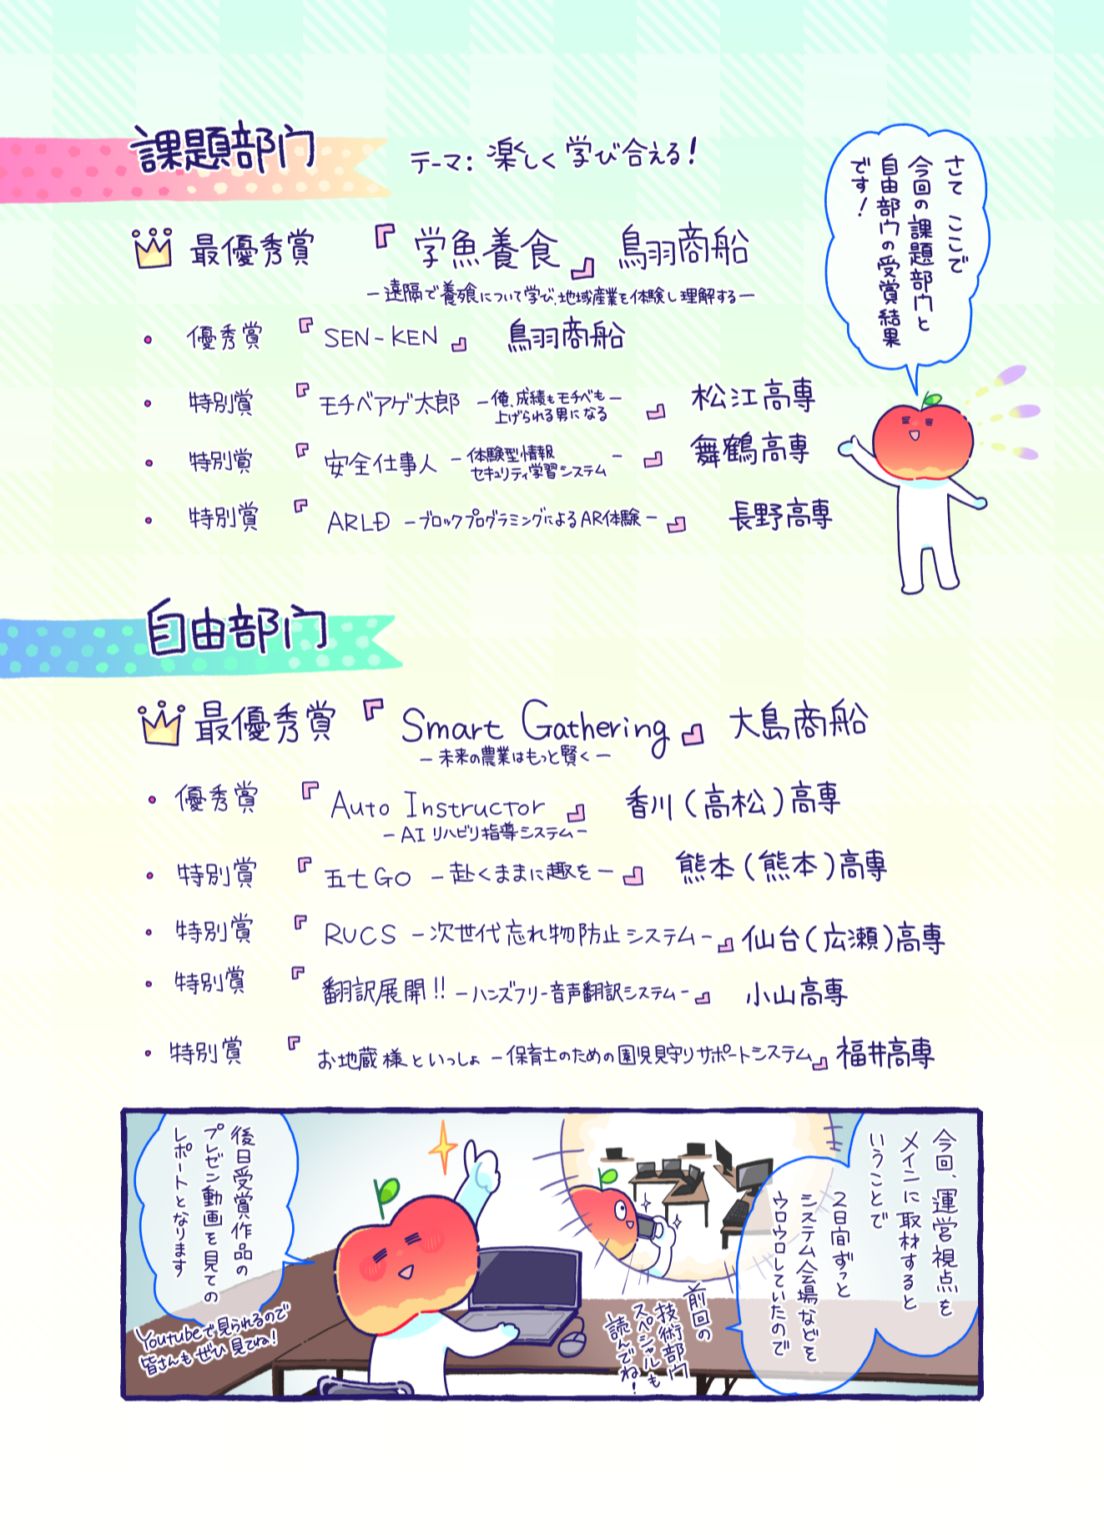 課題部門
テーマ: 楽しく学び合える!
さて ここで
今回の課題部門と
自由部門の受賞結果
です!
最優秀賞 『学魚養食』 鳥羽商船
ー遠隔で養殖について学び、地域産業を体験し理解するー
・ 優秀賞 『SEN-KEN』 鳥羽商船
・ 特別賞 『モチベアゲ太郎 ー俺、成績もモチベもー
上げられる男になる』 松江高専
・ 特別賞 『安全仕事人 ー体験型情報
セキュリティ学習システムー』 舞鶴高専
・ 特別賞 『ARLĐ ーブロックプログラミングによるAR体験ー』 長野高専
自由部門
最優秀賞 『Smart Gathering』 大島商船
ー未来の農業はもっと賢くー
・ 優秀賞 『Auto Instructor』 香川(高松)高専
ーAIリハビリ指導システムー
・ 特別賞 『五七GO ー赴くままに趣をー』 熊本(熊本)高専
・ 特別賞 『RUCS ー次世代忘れ物防止システムー』 仙台(広瀬)高専
・ 特別賞 『翻訳展開!! ーハンズフリー音声翻訳システムー』 小山高専
・ 特別賞 『お地蔵様といっしょ ー保育士のための園児見守りサポートシステム』 福井高専
今回、運営視点を
メインに取材すると
いうことで
2日間ずっと
システム会場などを
ウロウロしていたので
前回の
技術部門
スペシャルも
読んでね!
後日受賞作品の
プレゼン動画を見ての
レポートとなります
Youtubeで見られるので
皆さんもぜひ見てね!